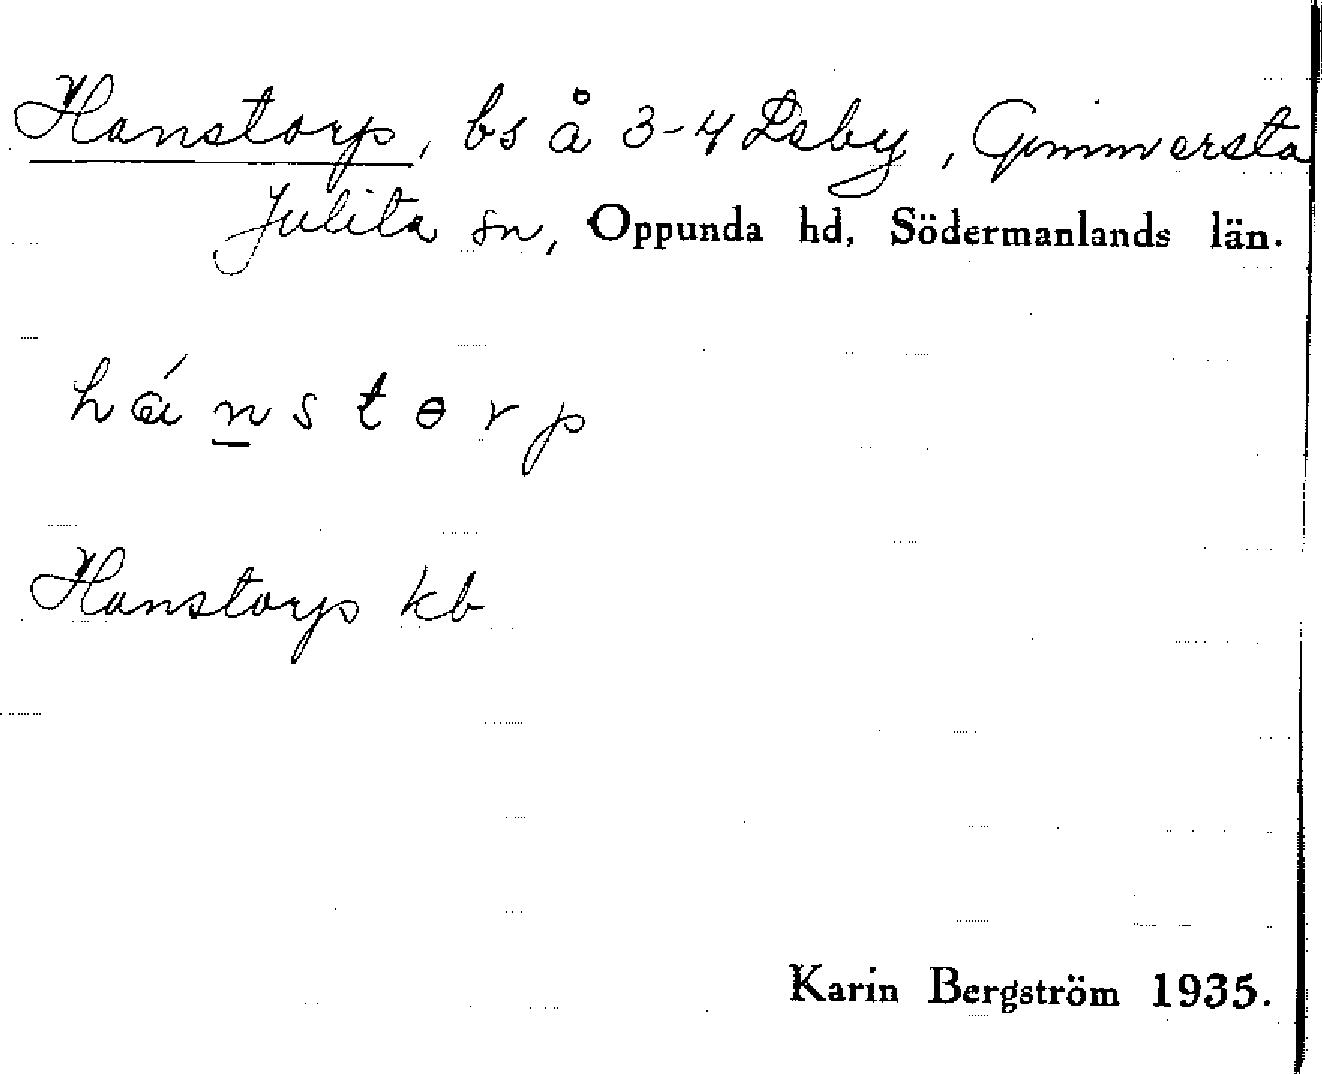 Hanstorp, bs å 3-4 Deby, Gimmersta
Julita sn, Oppunda hd, Södermanlands län.
hánstɵrp
Hanstorp kb
Karin Bergström 1935.